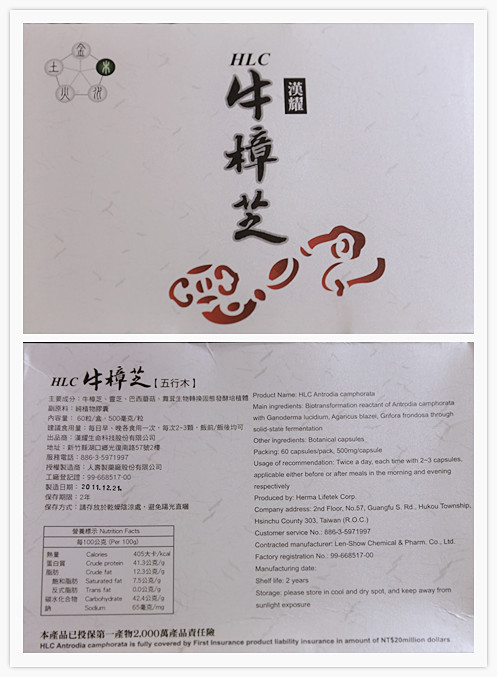 金
木
水
火
土
HLC
漢耀
牛樟芝
HLC 牛樟芝【五行木】
主要成分：牛樟芝、靈芝、巴西蘑菇、舞茸生物轉換固態發酵培植體
副原料：純植物膠囊
內容量： 60粒/盒，500毫克/粒
建議食用量：每日早、晚各食用一次，每次2~3顆，飯前/飯後均可
出品商：漢耀生命科技股份有限公司
地址：新竹縣湖口鄉光復南路57號2樓
服務電話：886-3-5971997
授權製造商：人壽製藥廠股份有限公司
工廠登記證：99-668517-00
製造日期：2011.12.21.
保存期限：2年
保存方式：請存放於乾燥陰涼處，避免陽光直曬
營養標示 Nutrition Facts
每100公克 (Per 100g)
熱量 Calories 405大卡/kcal
蛋白質 Crude protein 41.3公克/g
脂肪 Crude fat 12.3公克/g
飽和脂肪 Saturated fat 7.5公克/g
反式脂肪 Trans fat 0.0公克/g
碳水化合物 Carbohydrate 42.4公克/g
鈉 Sodium 65毫克/mg
Product Name: HLC Antrodia camphorata
Main ingredients: Biotransformation reactant of Antrodia camphorata
with Ganoderma lucidium, Agaricus blazei, Grifora frondosa through
solid-state fermentation
Other ingredients: Botanical capsules
Packing: 60 capsules/pack, 500mg/capsule
Usage of recommendation: Twice a day, each time with 2~3 capsules,
applicable either before or after meals in the morning and evening
respectively
Produced by: Herma Lifetek Corp.
Company address: 2nd Floor, No.57, Guangfu S. Rd., Hukou Township,
Hsinchu County 303, Taiwan (R.O.C.)
Customer service No.: 886-3-5971997
Contracted manufacturer: Len-Show Chemical & Pharm. Co., Ltd.
Factory registration No.: 99-668517-00
Manufacturing date:
Shelf life: 2 years
Storage: please store in cool and dry spot, and keep away from
sunlight exposure
本產品已投保第一產物2,000萬產品責任險
HLC Antrodia camphorata is fully covered by First Insurance product liability insurance in amount of NT$20million dollars